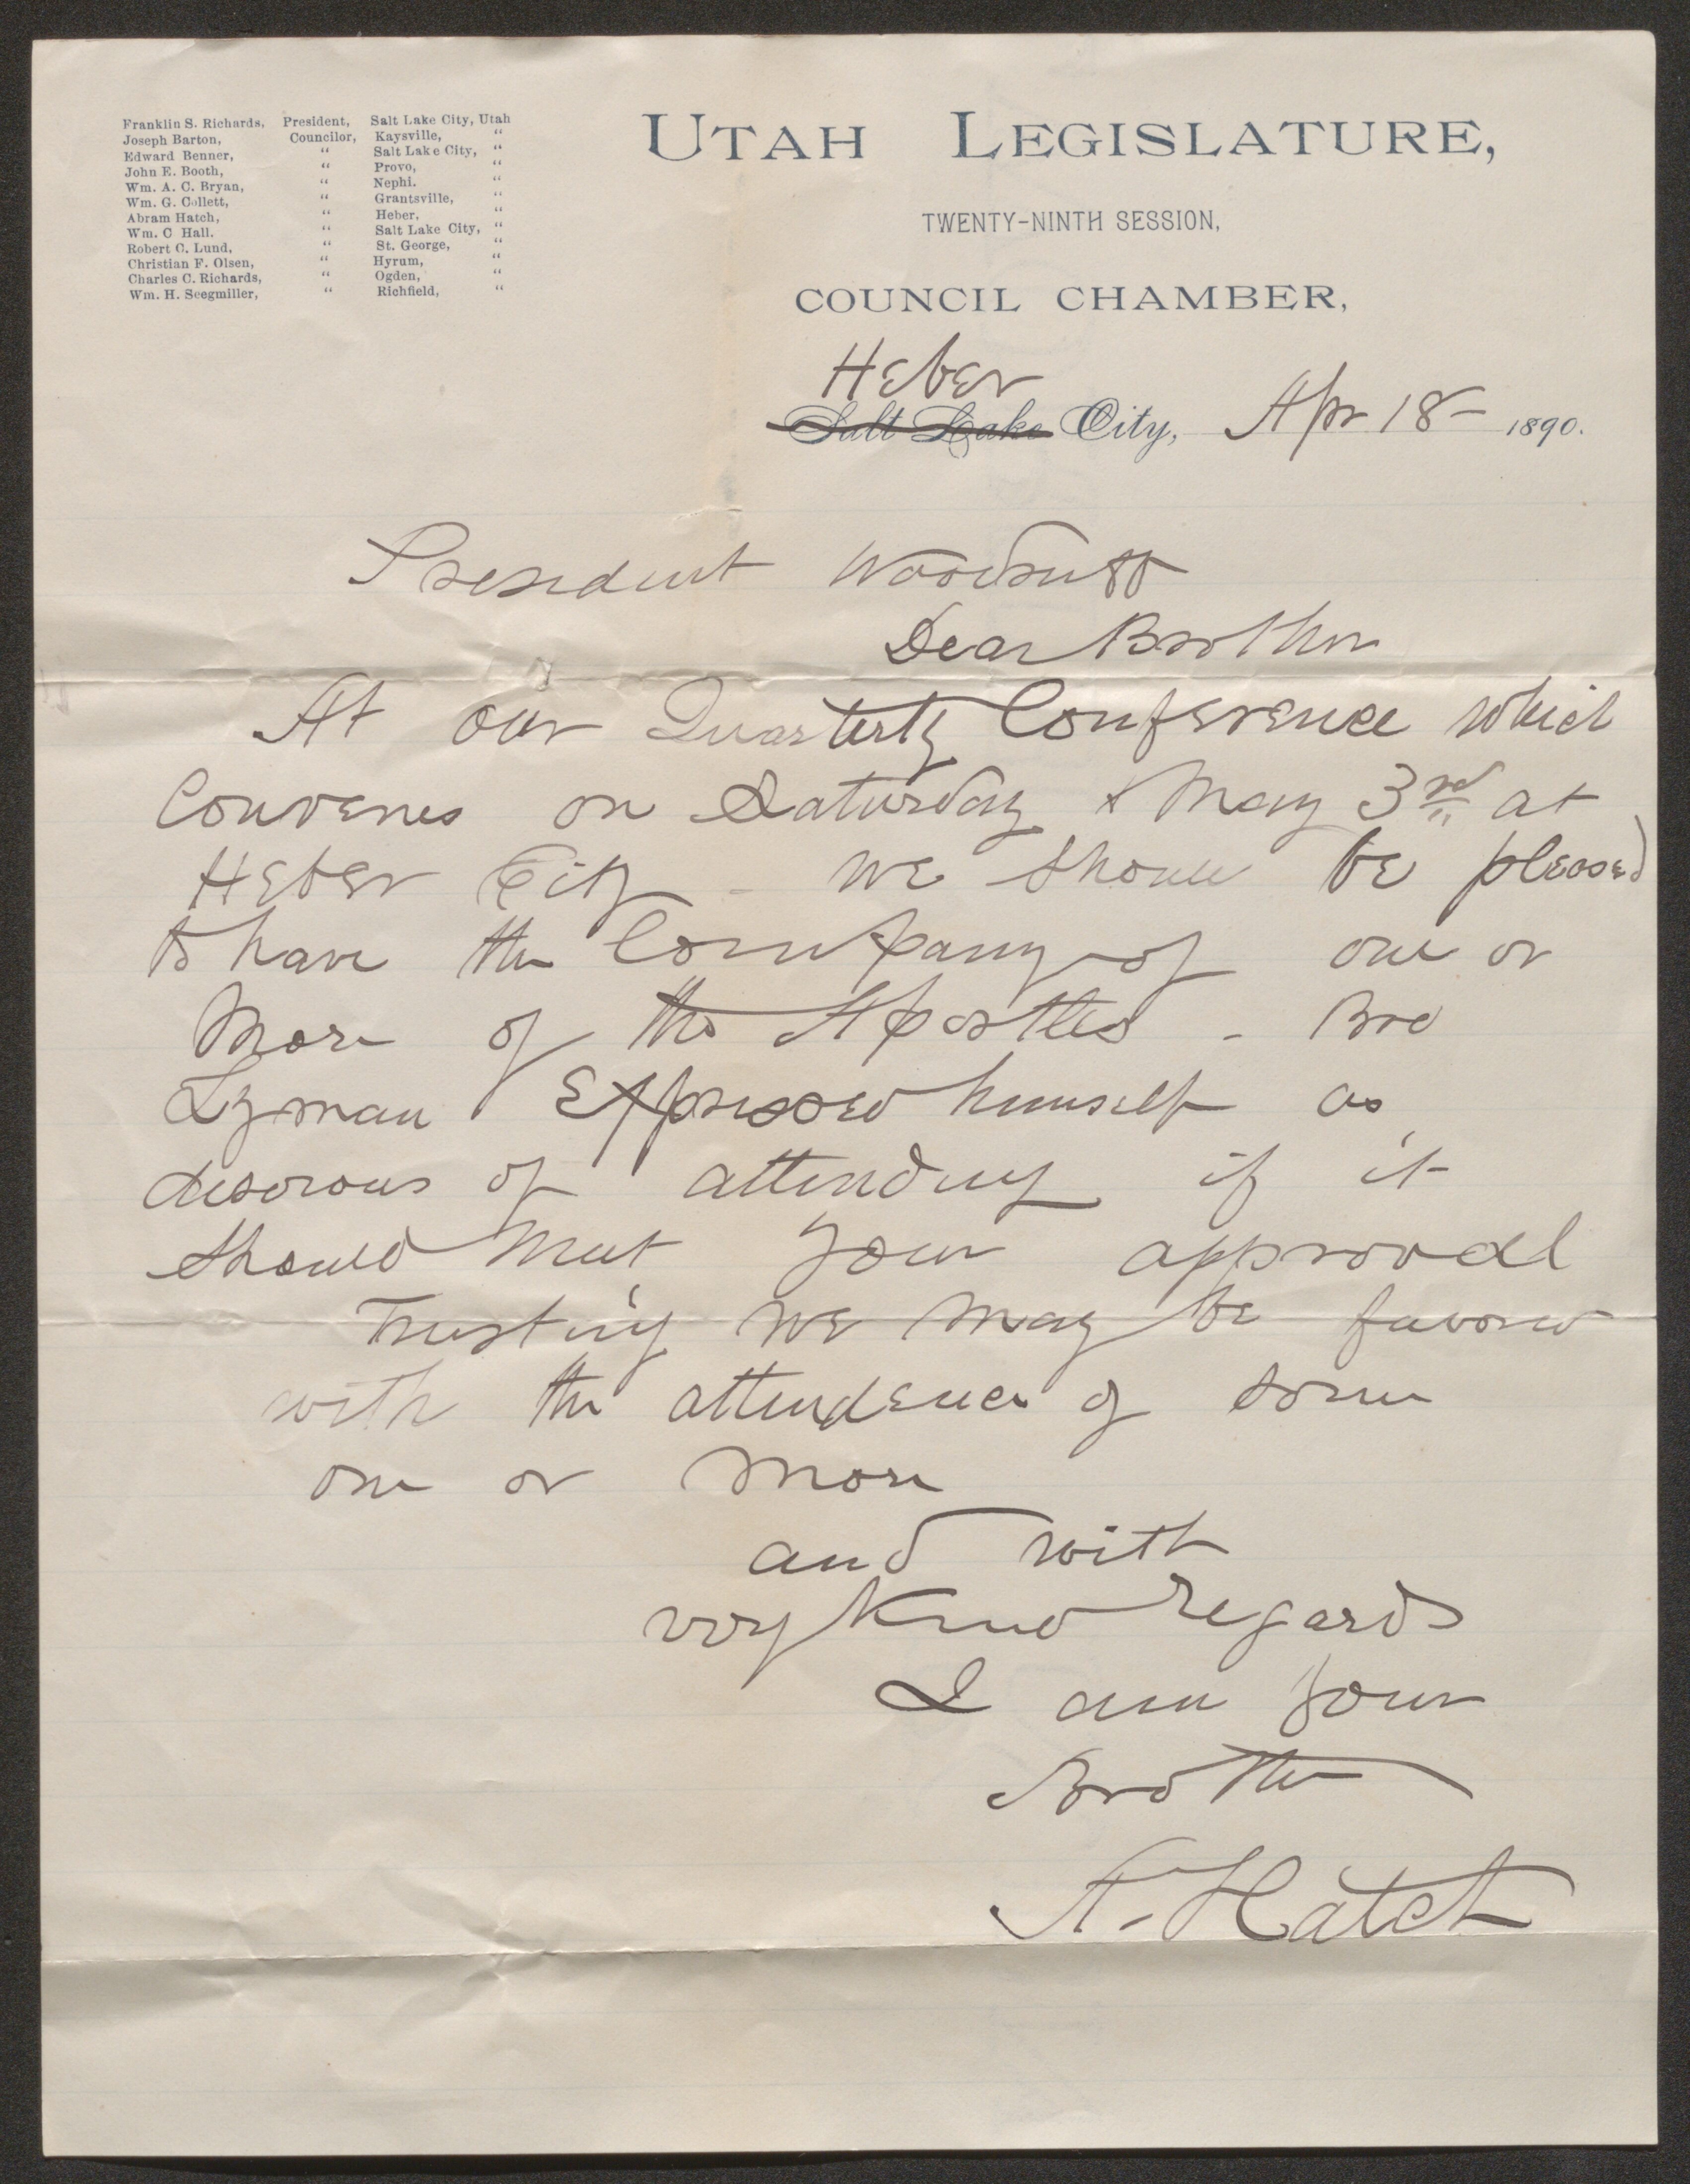 Franklin S. Richards, President, Salt Lake City, Utah
Joseph Barton, Councilor, Kaysville, "
Edward Benner, " Salt Lake City, "
John E. Booth, " Provo, "
Wm. A. C. Bryan, " Nephi. "
Wm. G. Collett, " Grantsville, "
Abram Hatch, " Heber, "
Wm. C Hall. " Salt Lake City, "
Robert C. Lund, " St. George, "
Christian F. Olsen, " Hyrum, "
Charles C. Richards, " Ogden, "
Wm. H. Seegmiller, " Richfield, "
UTAH LEGISLATURE,
TWENTY-NINTH SESSION,
COUNCIL CHAMBER,
Heber
Salt Lake City, Apr 18 - 1890.
President Woodruff
Dear Brother
At our Quarterly Conference which
Convenes on Saturday & May 3rd at
Heber City - we should be pleased
to have the Company of one or
More of the Apostles - Bro
Lyman Expressed himself as
desirous of attending if it
should Meet your approvall
Trusting we may be favored
with the attendence of some
one or More
and with
very Kind regards
I am your
Brother
A. Hatch